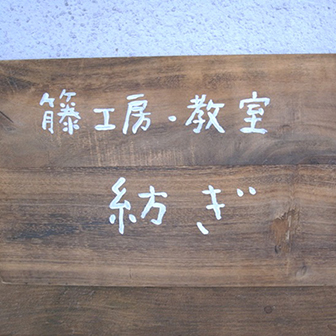 籐工房・教室
紡ぎ